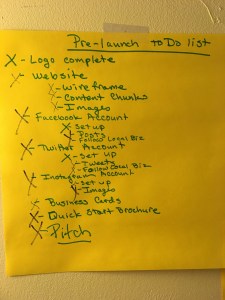 Pre-launch to Do list
X - Logo complete
X - Website
X - wire frame
X - Content Chunks
X - Images
X - Facebook Account
X - Set up
X - Posts
X - Follow Local Biz
X - Twitter Account
X - Set up
X - Tweets
X - Follow Local Biz
X - Instagram Account
X - Set up
X - Images
X - Business Cards
X - Quick Start Brochure
X - Pitch